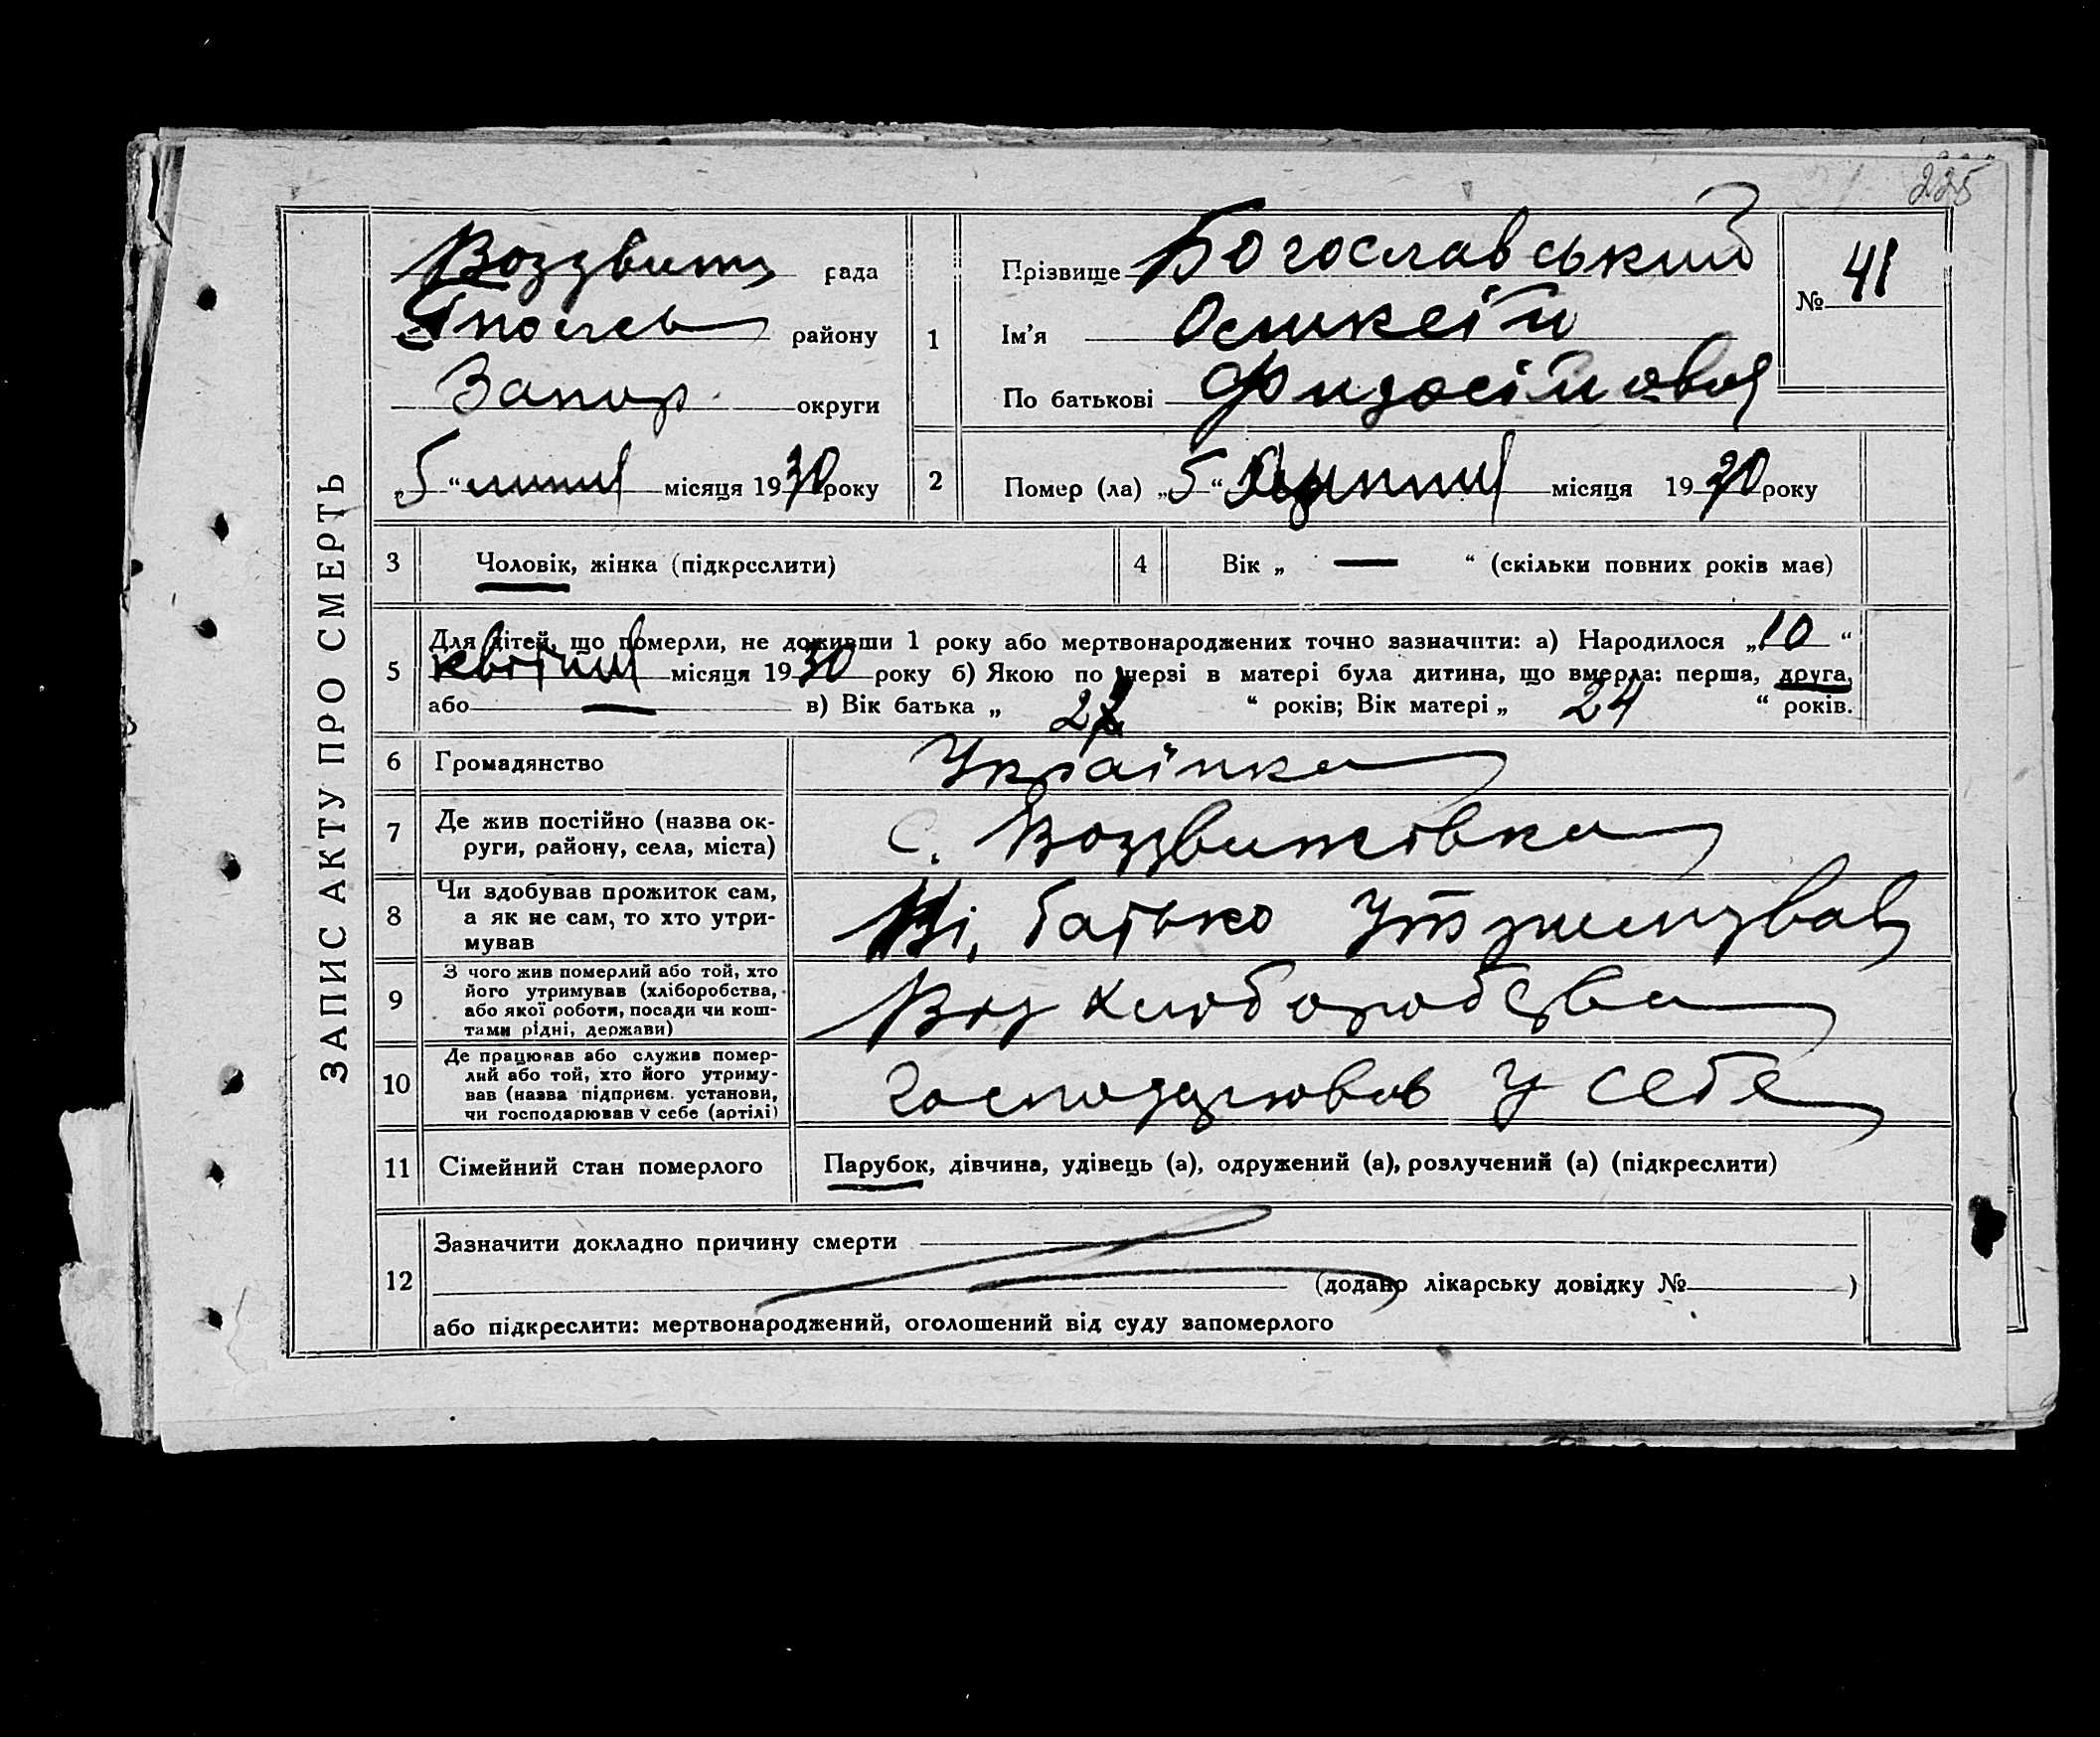 225
ЗАПИС АКТУ ПРО СМЕРТЬ
Воздвиж рада
району
Запор. округи
„5“ липня місяця 1930 року
1
Прізвище Богославський
Ім'я
По батькові
№ 41
2 Помер (ла) „5“ липня місяця 1930 року
3 Чоловік, жінка (підкреслити)
4 Вік „ — “ (скільки повних років має)
5 Для дітей, що померли, не доживши 1 року або мертвонароджених точно зазначити: а) Народилося „10“
квітня місяця 1930 року б) Якою по черзі в матері була дитина, що вмерла: перша, друга,
або — в) Вік батька „ “ років; Вік матері „ 24 “ років.
6 Громадянство Українка
7 Де жив постійно (назва ок-
руги, району, села, міста) с. Воздвижівка
8 Чи здобував прожиток сам,
а як не сам, то хто утри-
мував Ні, батько утримував
9 З чого жив померлий або той, хто
його утримував (хліборобства,
або якої роботи, посади чи кош-
тами рідні, держави)
10 Де працював або служив помер-
лий або той, хто його утриму-
вав (назва підприєм. установи,
чи господарював у себе (артілі) Господарював у себе
11 Сімейний стан померлого Парубок, дівчина, удівець (а), одружений (а), розлучений (а) (підкреслити)
12 Зазначити докладно причину смерти
(додано лікарську довідку № )
або підкреслити: мертвонароджений, оголошений від суду запомерлого